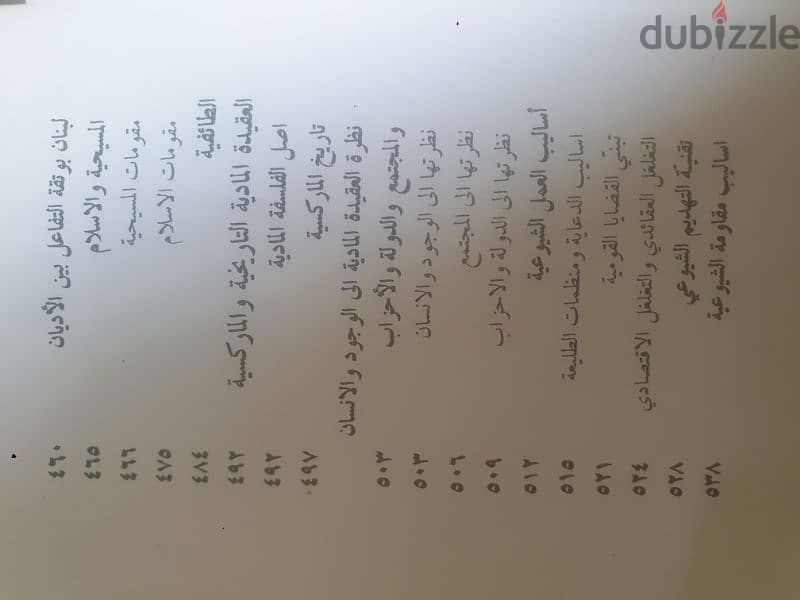 dubizzle
لبنان بوتقة التفاعل بين الأديان ٤٦٠
المسيحية والاسلام ٤٦٥
مقومات المسيحية ٤٦٦
مقومات الاسلام ٤٧٥
الطائفية ٤٨٤
العقيدة المادية التاريخية والماركسية ٤٩٢
اصل الفلسفة المادية ٤٩٢
تاريخ الماركسية ٤٩٧
نظرة العقيدة المادية الى الوجود والانسان
والمجتمع والدولة والأحزاب ٥٠٣
نظرتها الى الوجود والانسان ٥٠٣
نظرتها الى المجتمع ٥٠٦
نظرتها الى الدولة والاحزاب ٥٠٩
أساليب العمل الشيوعية ٥١٢
اساليب الدعاية ومنظمات الطليعة ٥١٥
تبني القضايا القومية ٥٢١
التغلغل العقائدي والتغلغل الاقتصادي ٥٢٤
تقنية التهديم الشيوعي ٥٢٨
اساليب مقاومة الشيوعية ٥٣٨